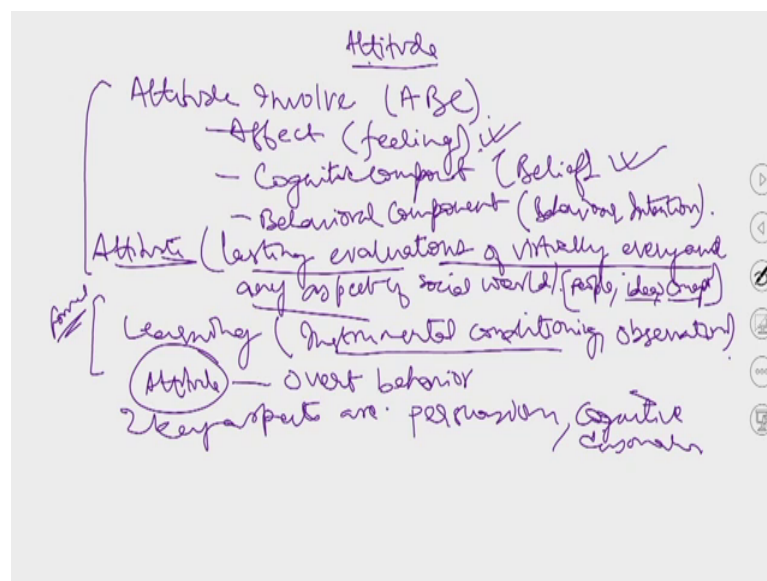 Attitude
Attitude Involve (ABC)
- Affect (feelings)
- Cognitive component (Beliefs
- Behavioral Component (Behavioral Intention).
Attitude (lasting evaluations of virtually every and
any aspect of social world) (people, ideas, concept)
formed
Learning (Instrumental conditioning, observation)
Attitude — overt behavior
2 key aspects are persuasion, Cognitive
dissonance